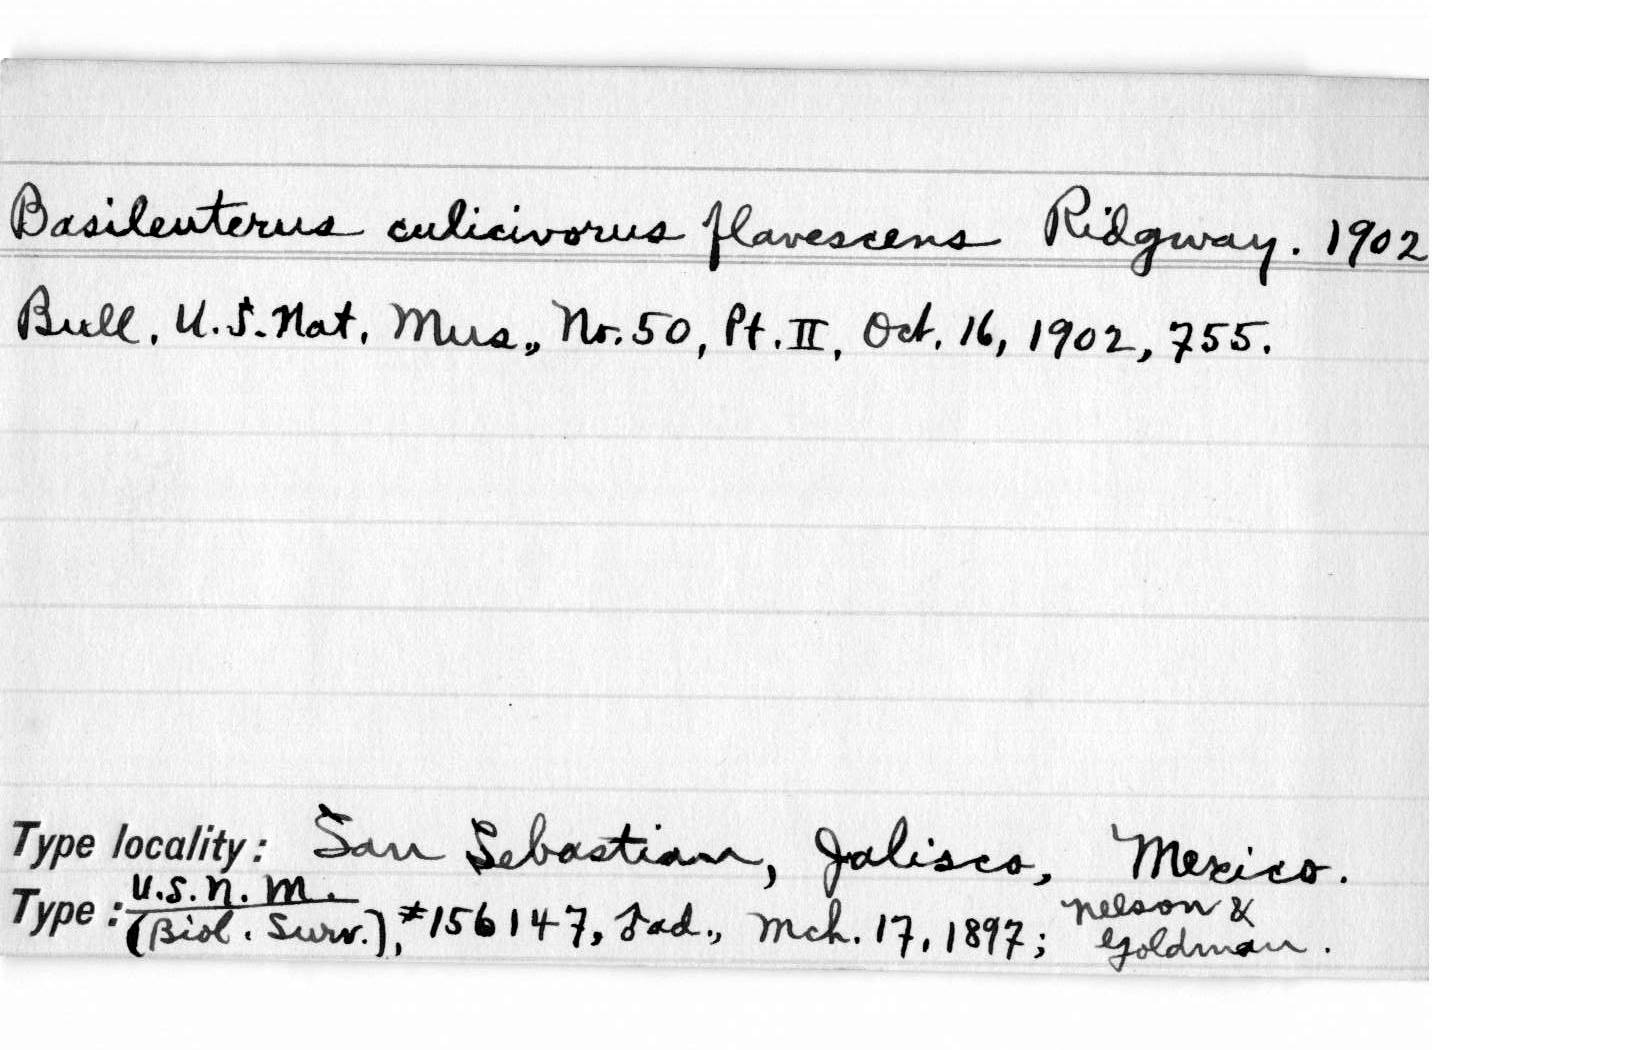 Basileuterus culicivorus flavescens Ridgway. 1902
Bull. U.S. Nat. Mus., No. 50, Pt. II, Oct. 16, 1902, 755.
Type locality: San Sebastian, Jalisco, Mexico.
Type: U.S.N.M. (Biol. Surv.), #156147, ad., Mch. 17, 1897; Nelson & Goldman.